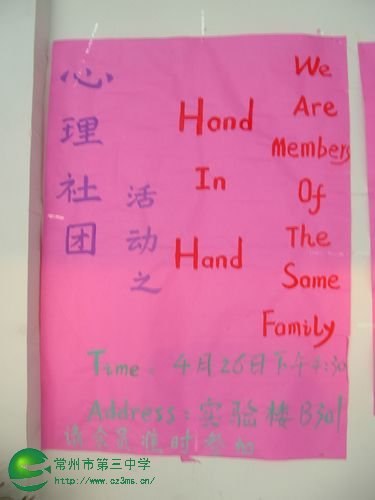 心理社团
活动之
Hand
In
Hand
We
Are
Members
Of
The
Same
Family
Time: 4月26日下午4:30
Address:实验楼B301
请会员准时参加
常州市第三中学
http://www.cz3ms.cn/